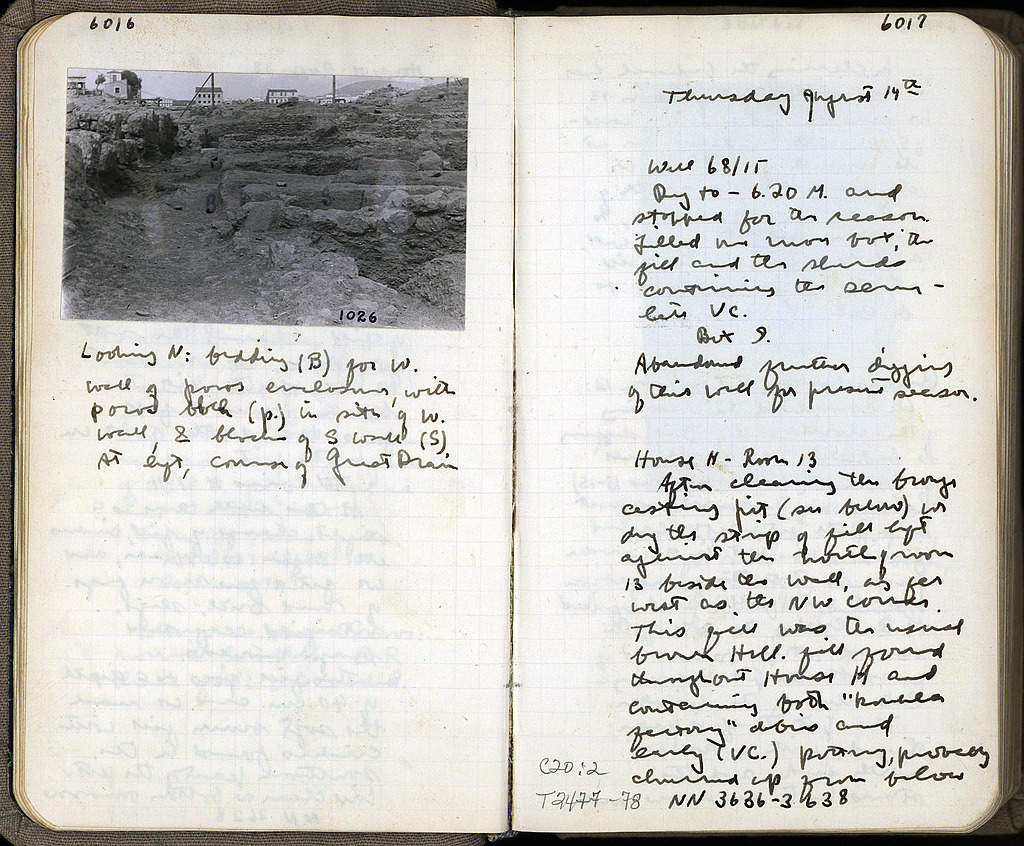 6016
1026
Looking N: bedding (B) for W.
wall of poros enclosure, with
poros block (p.) in situ of W.
wall, & blocks of S wall (S)
At left, course of Great Drain
6017
Thursday August 14th
Well 68/15
Dug to - 6.20 M. and
stopped for the season.
Filled one more box, the
fill and the sherds
continuing the same -
late VC.
Box 9.
Abandoned further digging
of this well for present season.
House H - Room 13
After cleaning the bronze
casting pit (see below) we
dug the strip of fill left
against the north of room
13 beside the wall, as far
west as the NW corner.
This fill was the usual
brown Hell. fill found
throughout House H and
containing both
factory" debris and
early (VC.) pottery, probably
churned up from below
C20:2
T2477-78 NN 3636-3638